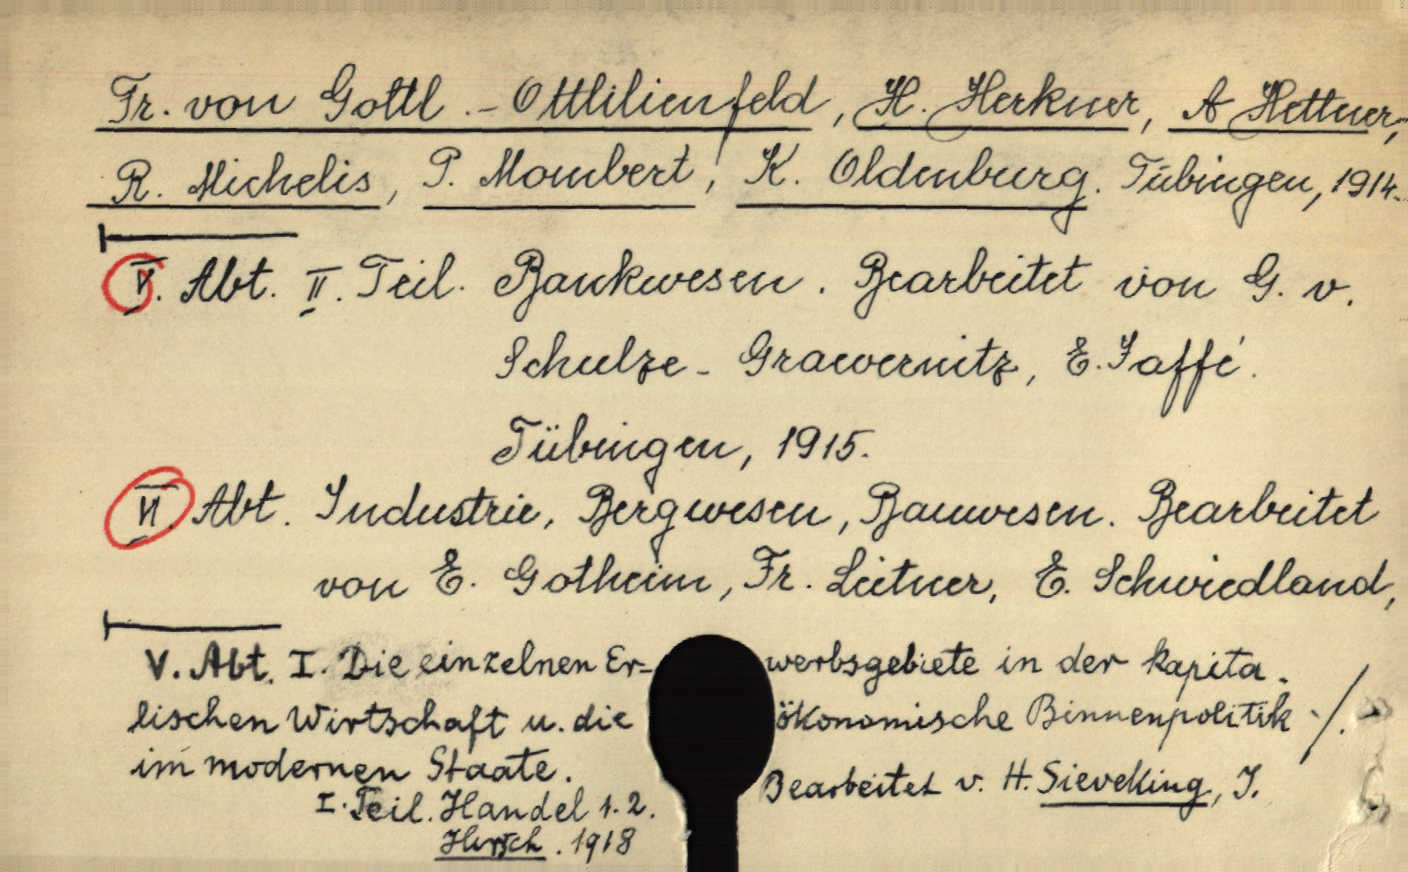 Fr. von Gottl.-Ottlilienfeld, H. Herkner, A Hettner,
R. Michelis, P. Mombert, K. Oldenburg. Tübingen, 1914.
V. Abt. II. Teil. Bankwesen. Bearbeitet von G. v.
Schulze-Graevernitz, E. Jaffé.
Tübingen, 1915.
VI. Abt. Industrie, Bergwesen, Bauwesen. Bearbeitet
von E. Gotheim, Fr. Leitner, E. Schwiedland,
V. Abt. I. Die einzelnen Er- werbsgebiete in der kapita-
lischen Wirtschaft u. die ökonomische Binnenpolitik ./.
im modernen Staate.
I. Teil. Handel 1. 2. Bearbeitet v. H. Sieveking, J.
Hirsch. 1918